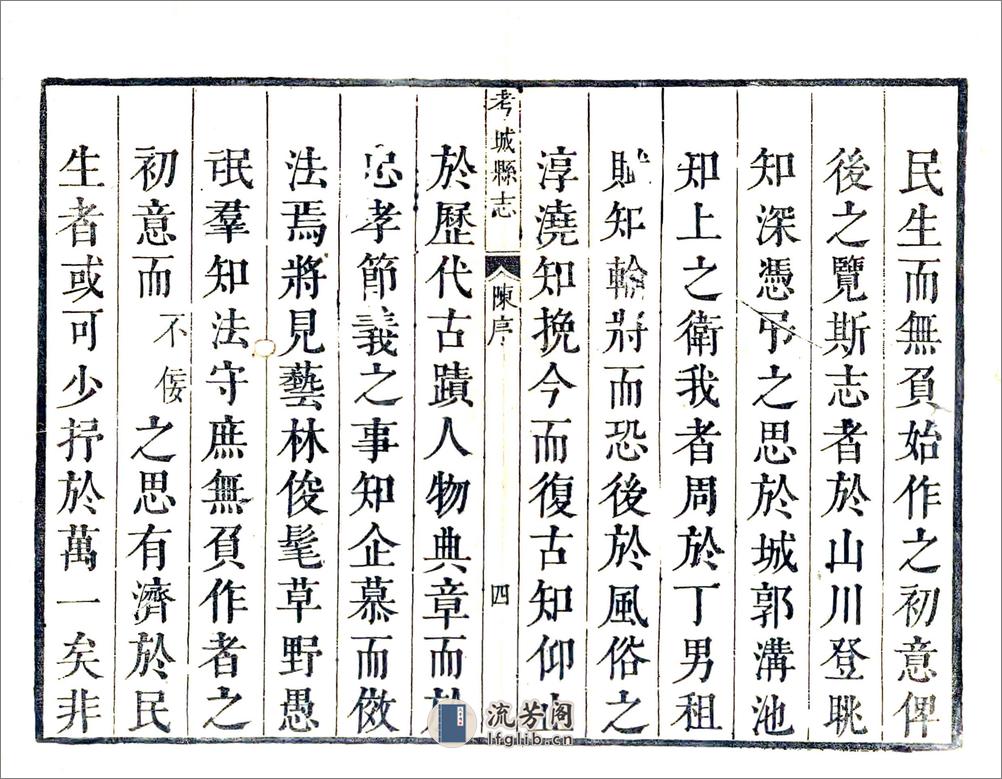 民生而無負始作之初意俾
後之覽斯志者於山川登眺
知深憑弔之思於城郭溝池
知上之衛我者周於丁男租
賦知輸將而恐後於風俗之
淳澆知挽今而復古知仰
考城縣志 陳序 四
於歷代古蹟人物典章而於
忠孝節義之事知企慕而傚
法焉將見藝林俊髦草野愚
氓羣知法守庶無負作者之
初意而不佞之思有濟於民
生者或可少抒於萬一矣非
流芳阁
lfglib.cn